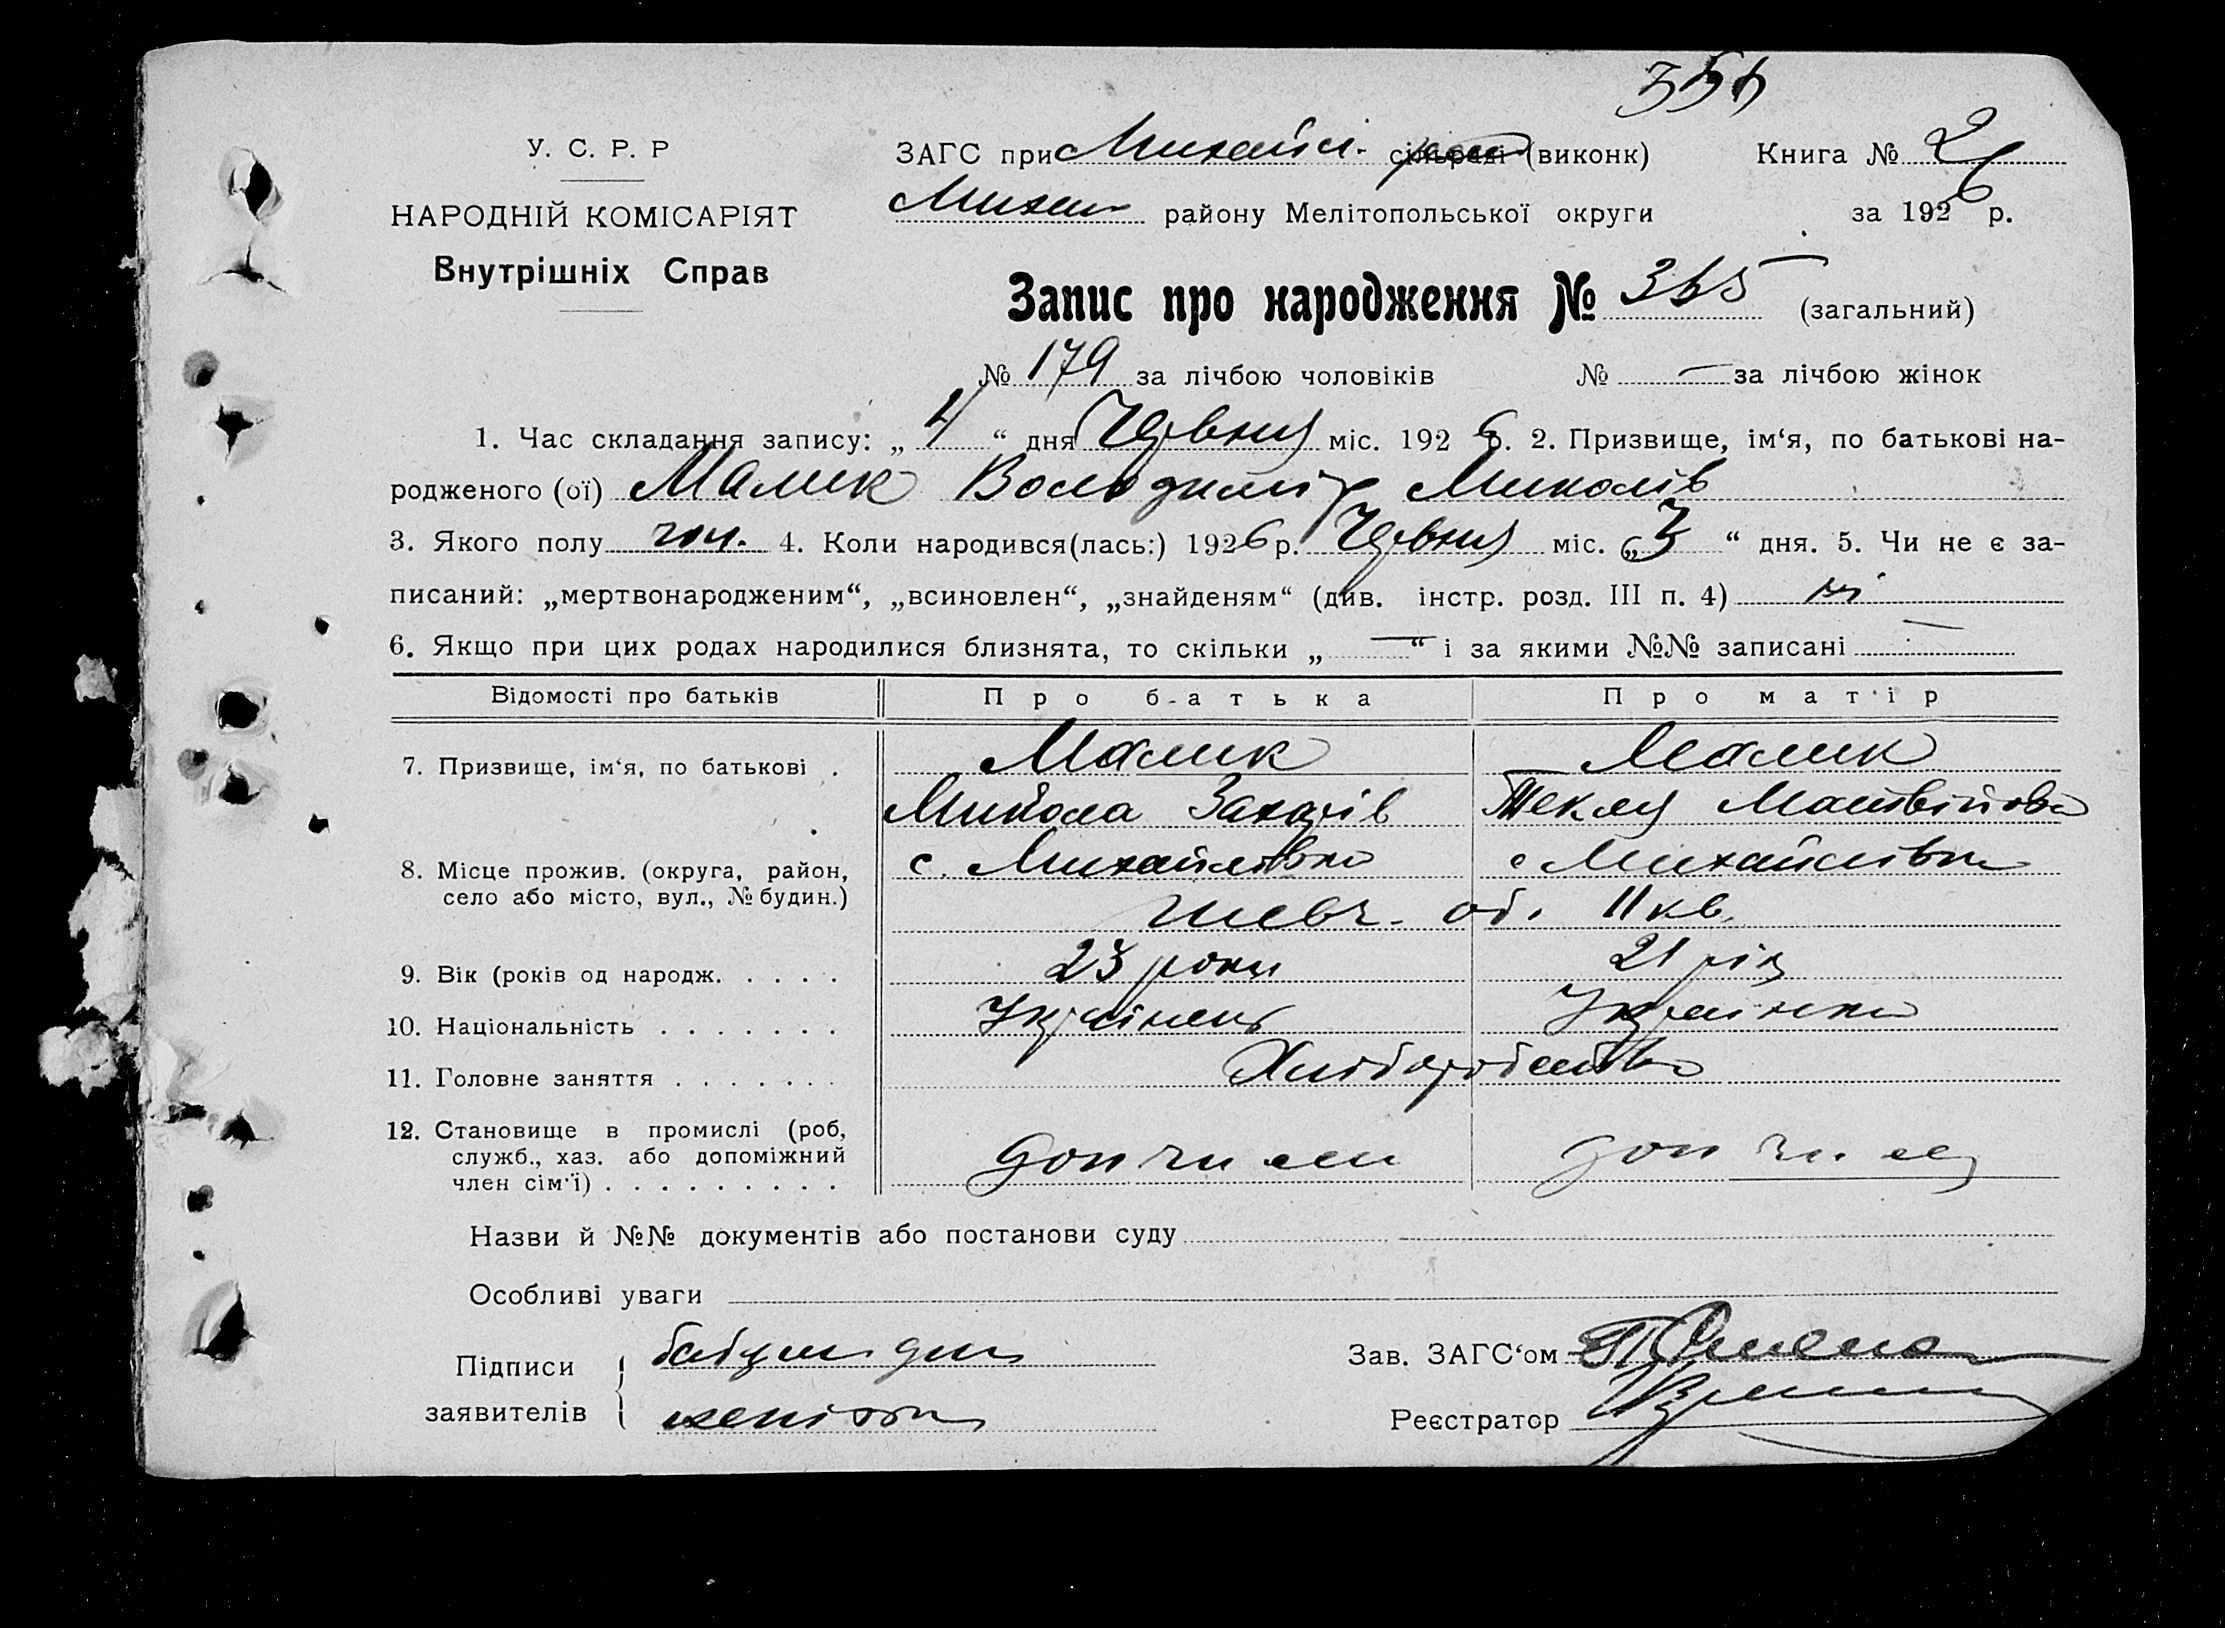 356
У. С. Р. Р
ЗАГС при Михайл. сільраді (виконк) Книга № 2
НАРОДНІЙ КОМІСАРІЯТ
Михай району Мелітопольської округи за 1926 р.
Внутрішніх Справ
Запис про народження № 365 (загальний)
№ 179 за лічбою чоловіків № — за лічбою жінок
1. Час складання запису: „ 4 “ дня Червня міс. 1926 р. 2. Призвище, ім‘я, по батькові на-
родженого (ої) Малик Володимир Миколів
3. Якого полу чол. 4. Коли народився(лась:) 1926 р. Червня міс. „ 3 “ дня. 5. Чи не є за-
писаний: „мертвонародженим“, „всиновлен“, „знайденям“ (див. інстр. розд. III п. 4) ні
6. Якщо при цих родах народилися близнята, то скільки „ — “ і за якими №№ записані —
Відомості про батьків Про батька Про матір
7. Призвище, ім‘я, по батькові . Малик Малик
Микола Захарів Текля Матвійова
8. Місце прожив. (округа, район, с. Михайлівка с Михайлівка
село або місто, вул., № будин.) Шевч. об. 11 кв.
9. Вік (років од народж. . . . . 23 роки 21 рік
10. Національність . . . . . . . Українець Українка
11. Головне заняття . . . . . . . Хліборобство
12. Становище в промислі (роб,
служб., хаз. або допоміжний доп чл сім доп чл. с
член сім‘ї) . . . . . . . . .
Назви й №№ документів або постанови суду
Особливі уваги
Підписи Зав. ЗАГС‘ом
заявителів Реєстратор